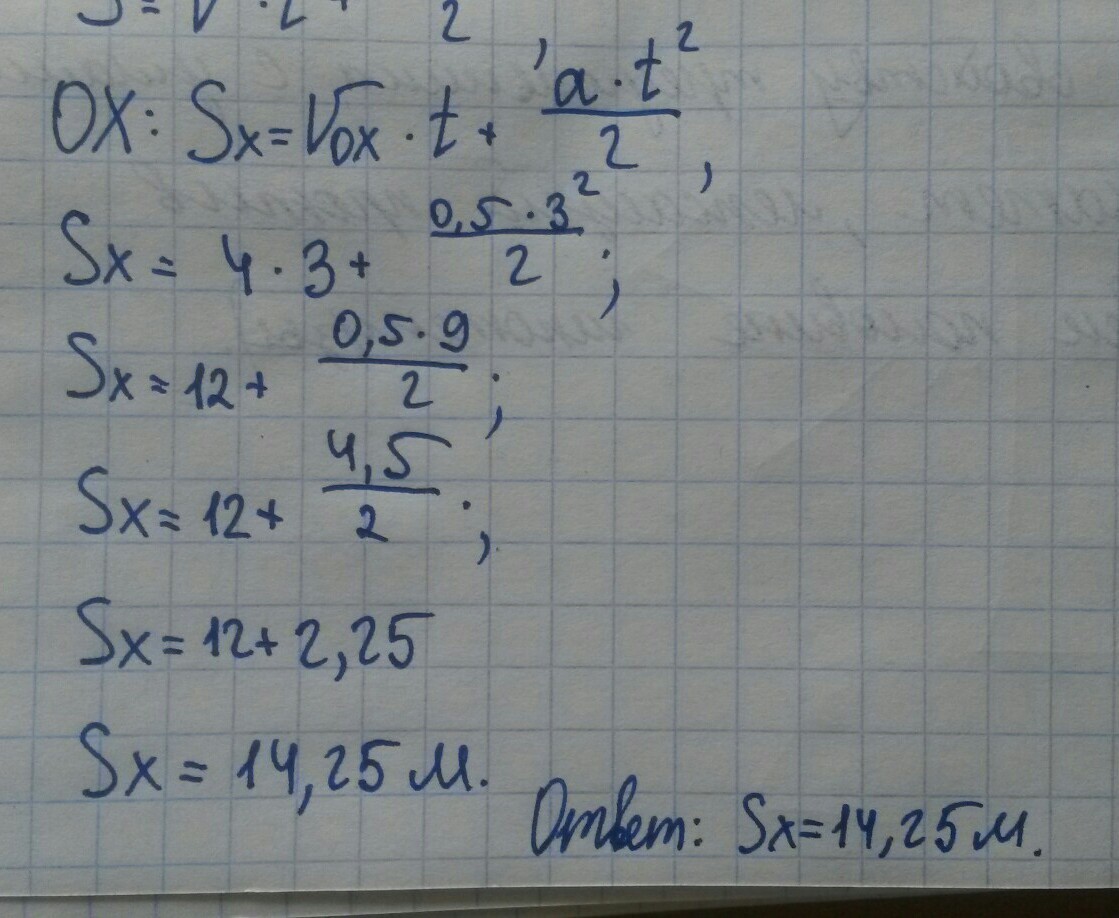 S = V · t + 2 ,
OX: Sx = V0x · t + a · t² / 2 ,
Sx = 4 · 3 + 0,5 · 3² / 2 ;
Sx = 12 + 0,5 · 9 / 2 ;
Sx = 12 + 4,5 / 2 ;
Sx = 12 + 2,25
Sx = 14,25 м.
Ответ: Sx = 14,25 м.